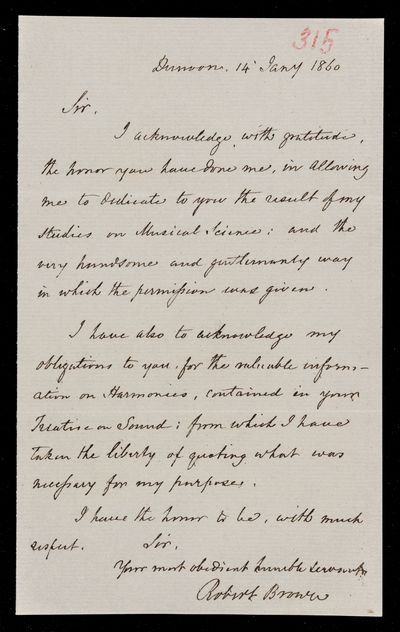 315
Dunoon. 14 Jany 1860
Sir,
I acknowledge with gratitude,
the honor you have done me, in allowing
me to dedicate to you the result of my
studies on Musical Science: and the
very handsome and gentlemanly way
in which the permission was given.
I have also to acknowledge my
obligations to you, for the valuable inform-
ation on Harmonics, contained in your
Treatise on Sound; from which I have
taken the liberty of quoting what was
necessary for my purpose.
I have the honor to be, with much
respect. Sir,
Your most obedient humble servant
Robert Brown